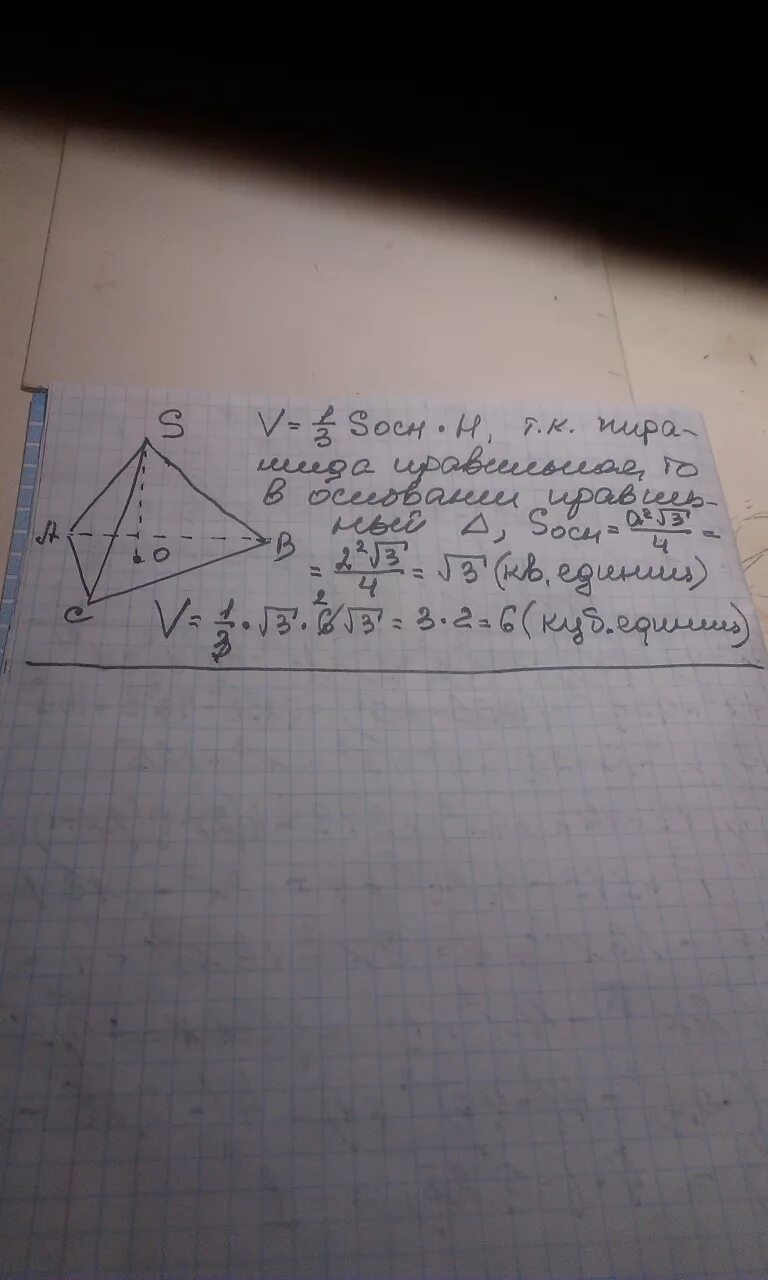 S
A
O
B
C
V = 1/3 Sосн · H, т.к. пира-
мида правильная, то
в основании правиль-
ный Δ, Sосн = a²√3/4 =
= 2²√3/4 = √3 (кв. единиц)
V = 1/3 · √3 · 6√3 2 = 3 · 2 = 6 (куб. единиц)